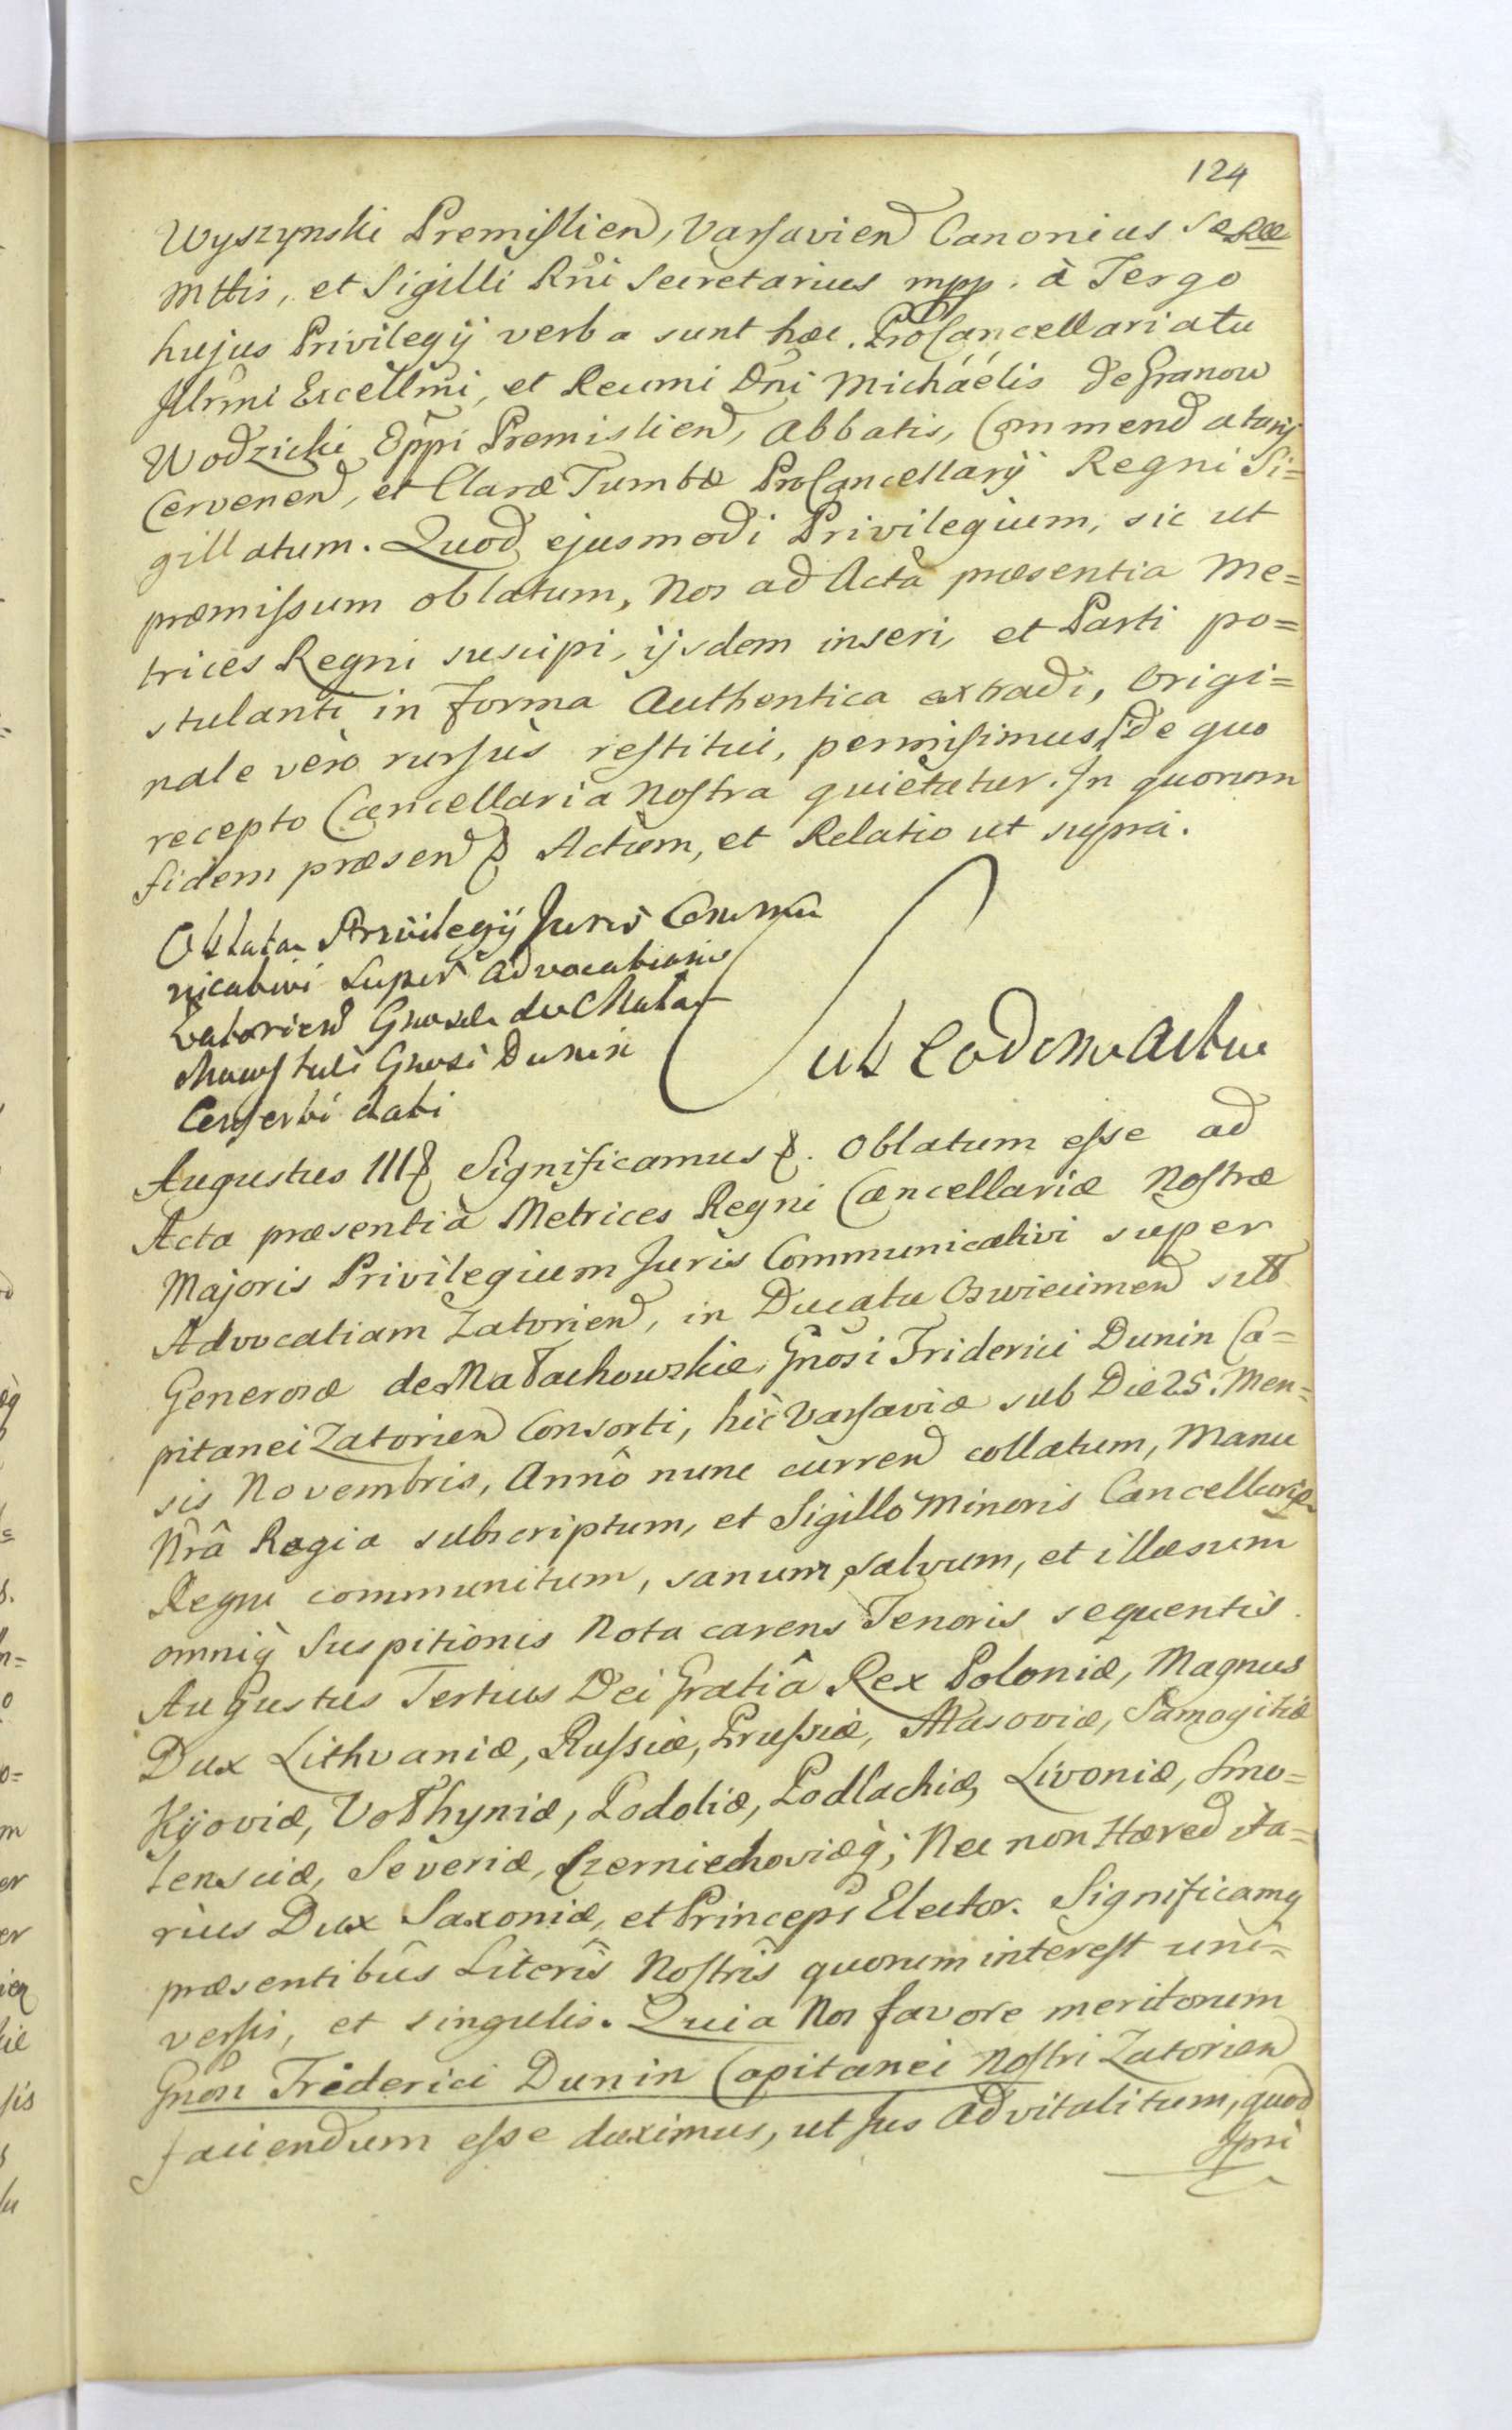 124
Wyszynski Premislien, Varsavien Canonius SaRæ
Mttis, et Sigilli Rni Secretarius mpp. à Tergo
hujus Privilegÿ verba sunt hæc. ProCancellariatu
Jllrmi Excellmi, et Reumi Dni Micháélis de Granow
Wodzicki Eppi Premislien, Abbatis, Commendatarÿ
Cervenen, et Claræ Tumbæ ProCancellarÿ Regni Si=
gillatum. Quod ejusmodi Privilegium, sic ut
præmissum oblatum, Nos ad Acta præsentia Me=
trices Regni suscipi, ijsdem inseri, et Parti po=
stulanti in forma Authentica extradi, Origi=
nale vero rursùs restitui, permisimus, de quo
recepto Cancellaria Nostra quietatur. In quorum
fidem præsen & Actum, et Relatio ut supra.
Oblata Privilegÿ Juris Commu
nicativi super Advocationis
Zatorien Gnosæ de Mała
chowstuli Gnosi Dunin
Consorti dati
Sub Eodem Actu
Augustus III & Significamus &. Oblatum esse ad
Acta præsentia Metrices Regni Cancellariæ Nostræ
Majoris Privilegium Juris Communicativi super
Advocatiam Zatorien, in Ducatu Oswiecimen sitt
Generosæ de Małachowskie, Gnosi Friderici Dunin Ca=
pitanei Zatorien Consorti, hic Varsaviæ sub Die 25. Men=
sis Novembris, Annô nunc curren collatum, Manu
Nrâ Regia subscriptum, et Sigillo Minoris Cancellariæ
Regni communitum, sanum, salvum, et illæsum
omniq Suspitionis Nota carens Tenoris sequentis.
Augustus Tertius Dei Gratiâ Rex Poloniæ, Magnus
Dux Lithvaniæ, Russiæ, Prussiæ, Masoviæ, Samogitiæ
Kijoviæ, Vołhyniæ, Podoliæ, Podlachiæ, Livoniæ, Smo=
lensciæ, Severiæ, Czerniechoviæq; Nec non Hæredita=
rius Dux Saxoniæ, et Princeps Elector. Significamq
præsentibûs Literîs Nostrîs quorum interest uni=
versis, et singulis. Quia Nos favore meritorum
Gnon Friderici Dunin Capitanei Nostri Zatorien
faciendum esse duximus, ut Jus Advitalitum, quod
Ipsi